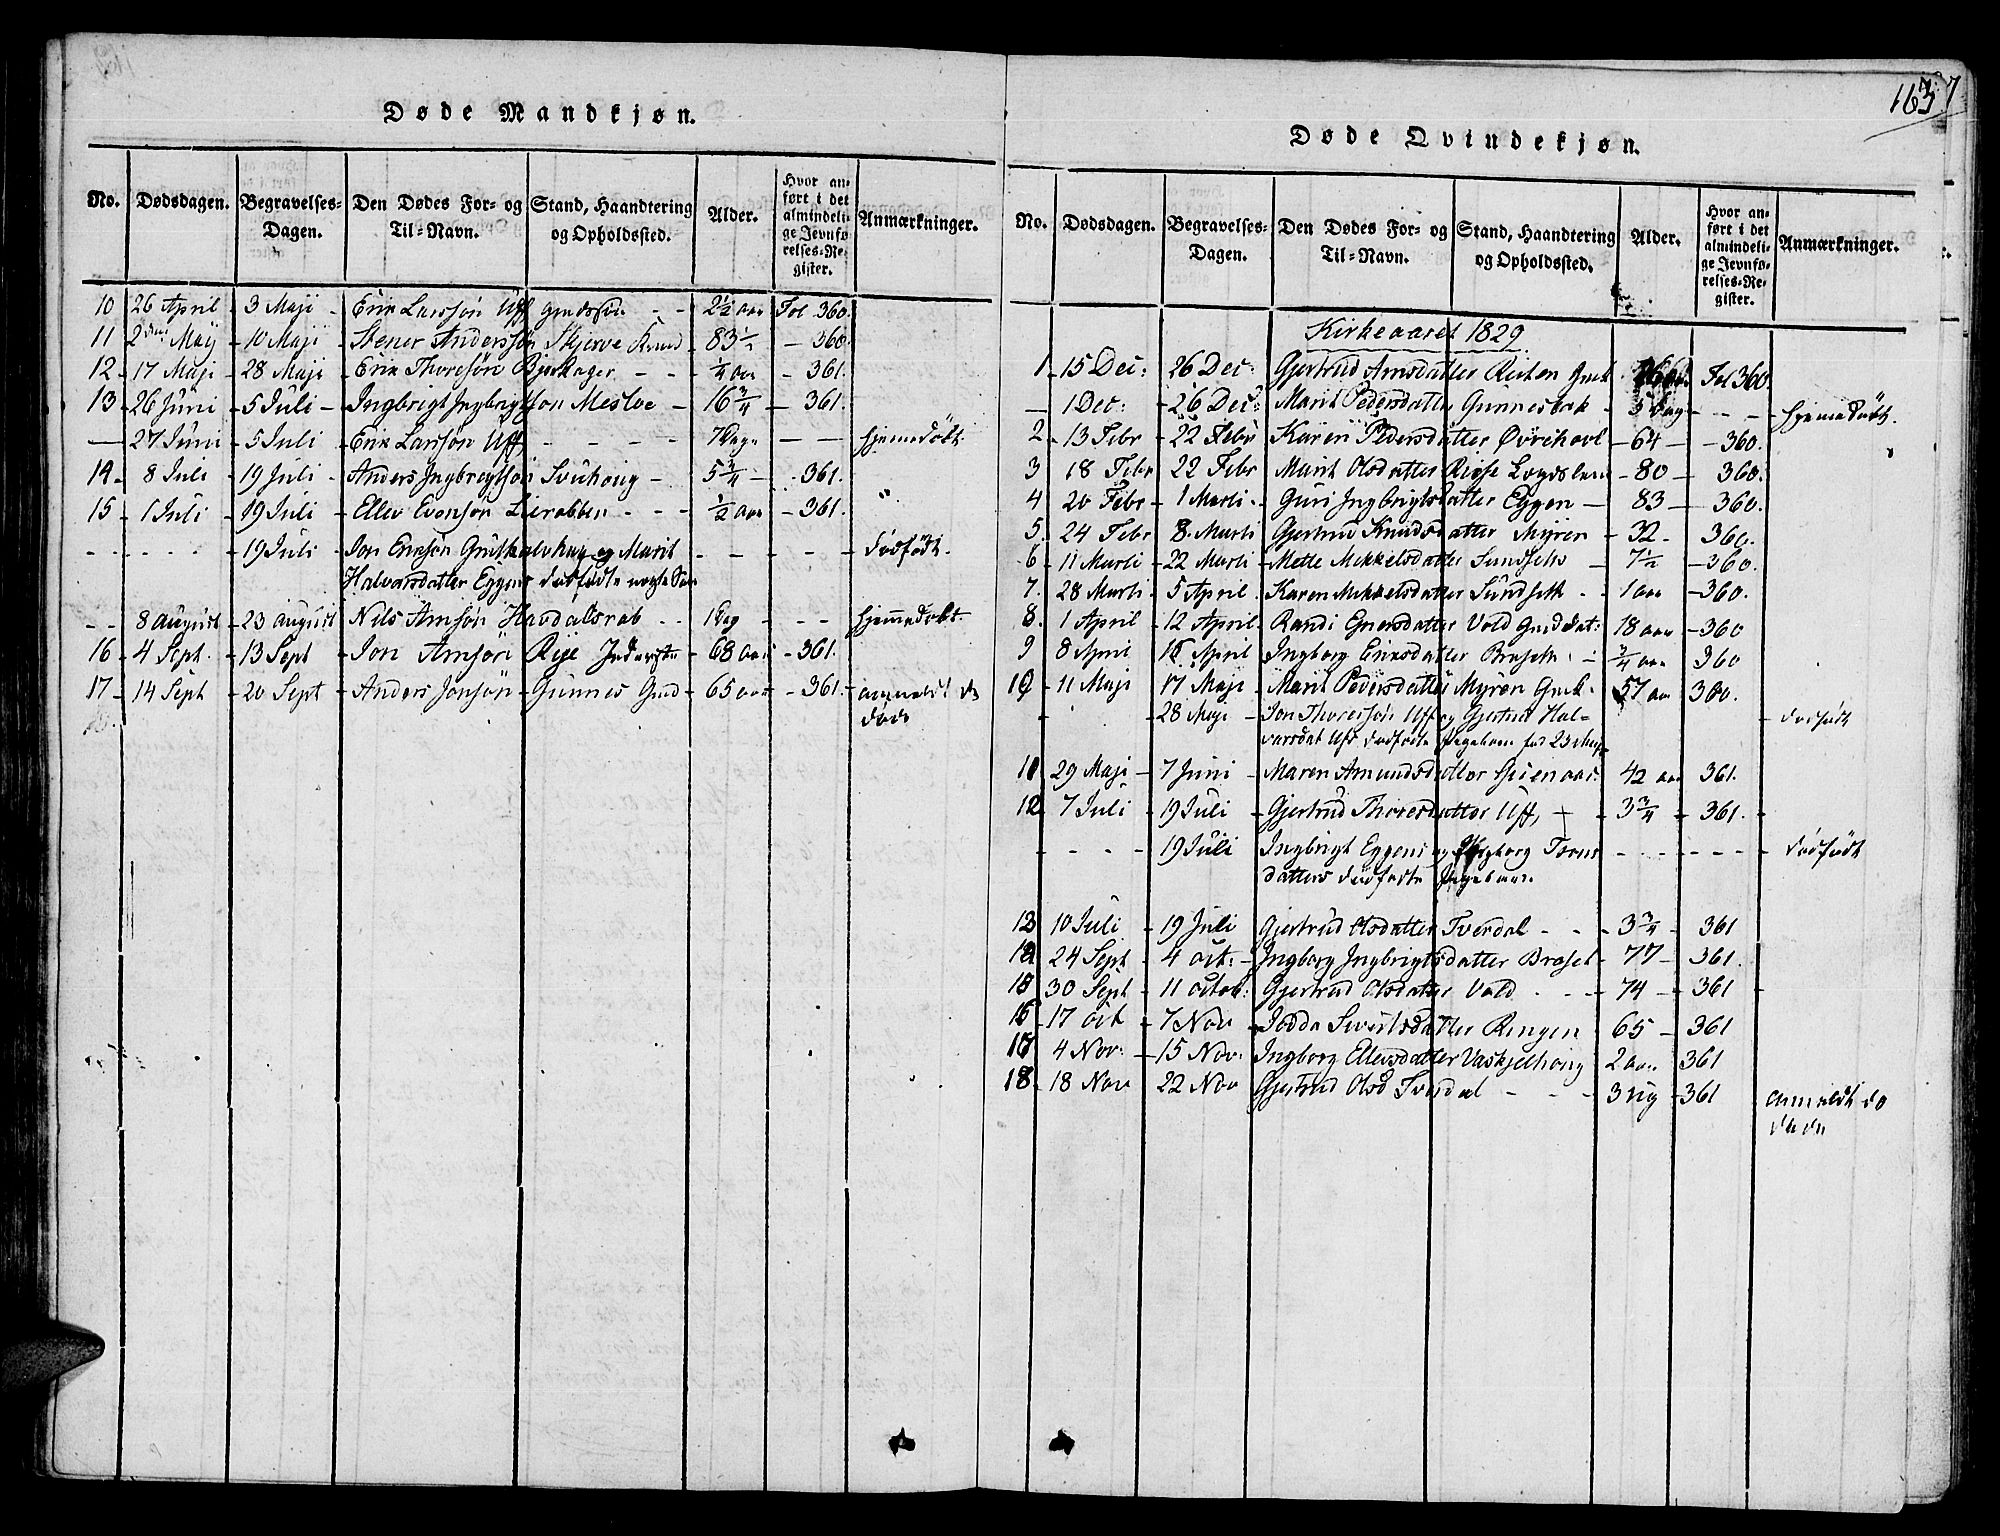 163
7
Døde Mandkjøn.
No. Dødsdagen. Begravelses-Dagen. Den Dødes For- og Til-Navn. Stand, Haandtering og Opholdssted. Alder. Hvor anført i det almindelige Jevnførelses-Register. Anmærkninger.
10 26 April 3 Maji - Erik Larssøn Uff Gmdssøn - - 2½ aar Fol 360.
11 2den Maij 10 Maji - Stener Anderssøn Skjerve 83½ - 360
12 - 17 Maji - 28 Maji - Erik Thoresøn Bjerkager - - ¼ aar - 361.
13 - 26 Juni - 5 Juli - Ingbrigt Ingbrigtsøn Mesloe - 16¾ - 361.
- 27 Juni - 5 Juli - Erik Larssøn Uff - - - - 7 Dage - - - hjemmedøbt.
14 - 8 Juli - 19 Juli - Anders Ingbrigtsøn Svuhoug - 5¾ - 361.
15 - 1 Juli - 19 Juli - Ellev Evensøn Lierabben - - - ½ aar - 361.
- - - - - 19 Juli - Jon Ericsøn Gruthalvhaug og Marit - - - - - dødfødt.
Halvorsdatter Eggens dødfødte
- - 8 August - 23 August Nils Arnsøn Havdalsrab - - 1 Dag - - - hjemmedøbt
16 - 4 Sept. - 13 Sept - Jon Arnsøn Rise Inderste - 68 aar - 361.
17 - 14 Sept - 20 Sept - Anders Jonsøn - Gunnes Gmd - 65 aar - 361. anmeldt
døde
Døde Qvindekjøn.
No. Dødsdagen. Begravelses-Dagen. Den Dødes For- og Til-Navn. Stand, Haandtering og Opholdssted. Alder. Hvor anført i det almindelige Jevnførelses-Register. Anmærkninger.
Kirkeaaret 1829
1 - 15 Dec: 26 Dec: Gjertrud Arnsdatter Fol 360.
- 1 Dec: - 26 Dec: Marit Pedersdatter Gunnesbak - 5 Dag - - - hjemmedøbt.
2 - 13 Febr - 22 Febr - Karen Pedersdatter Øvrehovl - 64 - 360.
3 18 Febr - 22 Febr - Marit Olsdatter Rise - 80 - 360.
4 20 Febr - 1 Marti - Guri Ingbrigtsdatter Eggen - 83 - 360.
5. 24 Febr - 8 Marti - Gjertrud Knudsdatter Myren - 32 - 360.
6 - 11 Marti - 22 Marti - Mette Mikkelsdatter Sundseth - 7½ - 360.
7. 28 Marti - 5 April - Karen Mikkelsdatter Sundseth - - 1 aar - 360.
8. - 1 April - 12 April - Randi Enersdatter Vold Gmd dat: 18 aar - 360
9 8 April 16 April - Ingborg Ericsdatter Braseth - - ¾ aar 360
10 - 11 Maji - 17 Maji - Marit Pedersdatter Myren - 57 aar 360.
28 Maji - Jon Thoressøn Uff og Gjertrud Hal- - dødfødt
varsdat Uff dødfødte Pigebarn fød 23 Maji
11 29 Maji - 7 Juni - Maren Amundsdatter 42 aar 361.
12 - 7 Juli - 19 Juli - Gjertrud Thoresdatter Uff, + - 3¾ - 361.
- - - - 19 Juli Ingbrigt Eggens og Ingborg - - - - - - - dødfødt
datters dødfødte Pigebarn
13 10 Juli - 19 Juli Gjertrud Olsdatter Tverdal - - - 3¾ - 361
14 - 24 Sept - 4 Oct: - Ingborg Ingbrigtsdatter Braset - 77 - 361.
15 30 Sept - 11 Octob: Gjertrud Olsdatter Vold - - - 74 - 361
16 - 17 Oct - 7 Nov - Jodda Sivertsdatter Ringen 65 - 361
17 4 Nov: - 15 Nov: Ingborg Ellevsdatter Vaskjelhoug 2 aar 361
18 - 18 Nov 22 Nov Gjertrud Olsd Tverdal - - - 3 ug - 361 anmeldt
døde